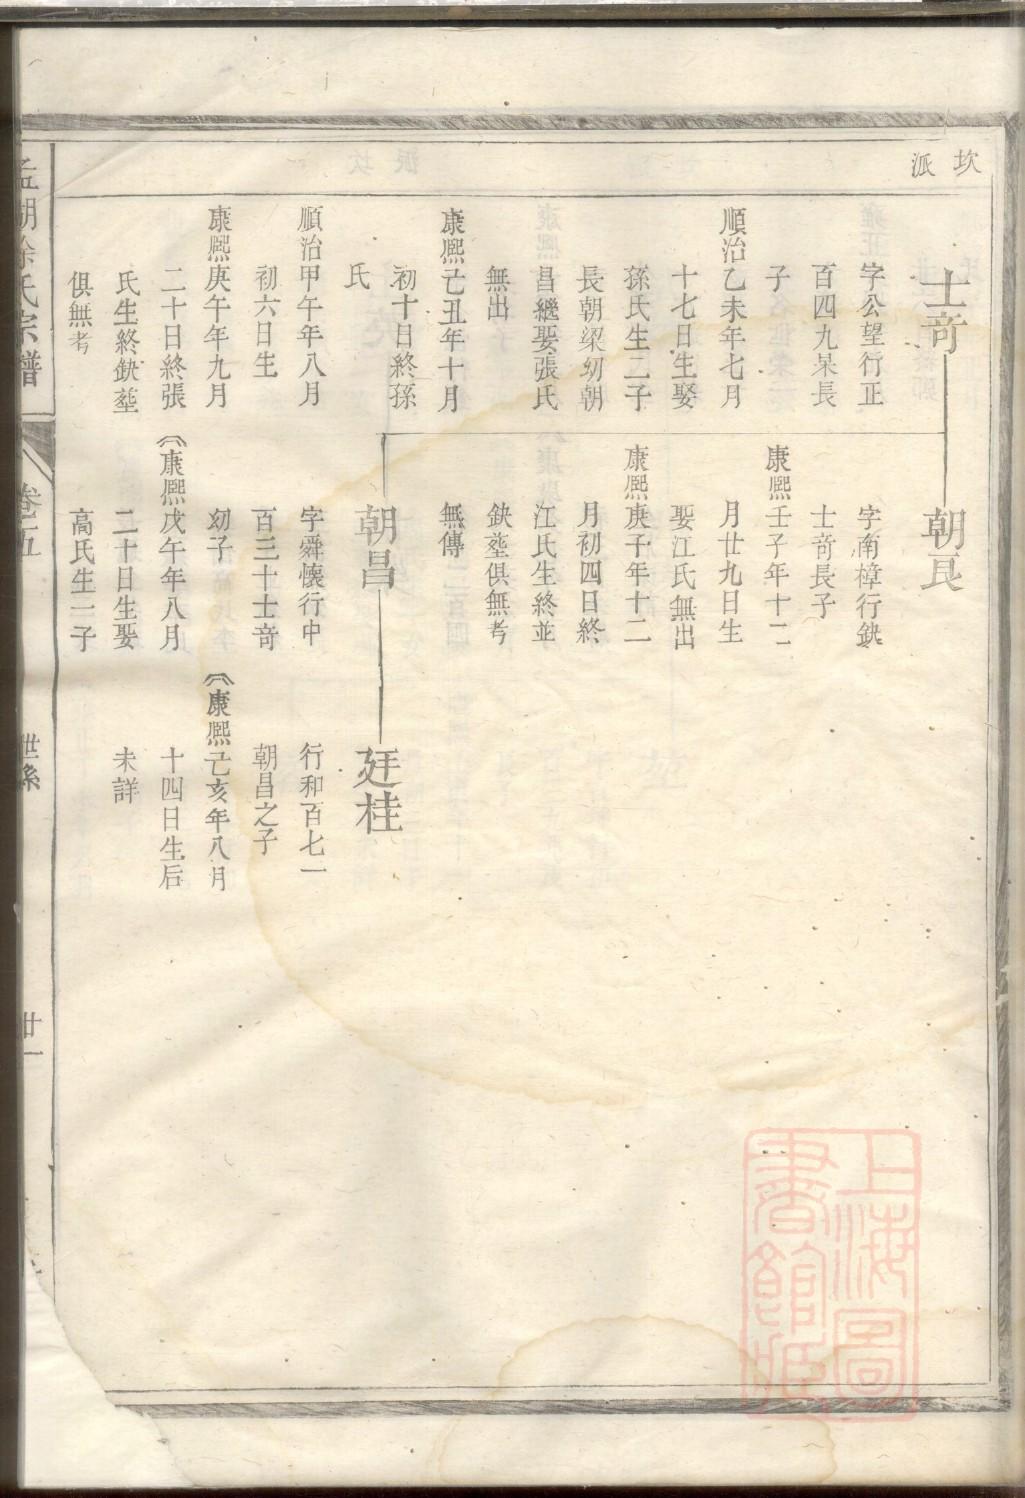 坎
派
士竒
字公望行正
百四九杲長
子
順治乙未年七月
十七日生娶
孫氏生二子
長朝梁㓜朝
昌繼娶張氏
無出
康熙己丑年十月
初十日終孫
氏
順治甲午年八月
初六日生
康熙庚午年九月
二十日終張
氏生終鈌塟
俱無考
朝良
字南樟行鈌
士竒長子
康熙壬子年十二
月廿九日生
娶江氏無出
康熙庚子年十二
月初四日終
江氏生終並
鈌塟俱無考
無傳
朝昌
字舜懷行中
百三十士竒
㓜子
康熙戊午年八月
二十日生娶
高氏生一子
廷桂
行和百七一
朝昌之子
康熙己亥年八月
十四日生后
未詳
孟湖徐氏宗譜
卷五
世系
廿一
上海圖
書館藏